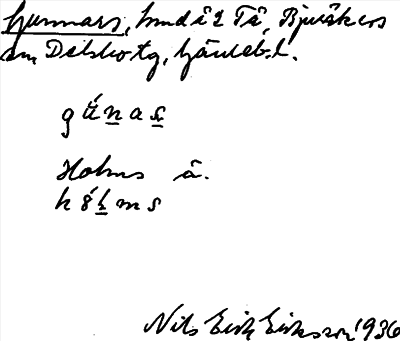 Gunnars, hmd å 2 Tå, Bjuråkers
sn, Delsbo tg, Gävleb. l.
g ú n a s
Holms å.
h ó l m s
Nils Erik Eriksson 1936